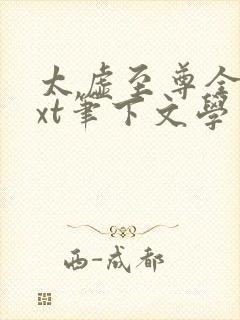 太虚至尊全
xt筆下文學
西-成都